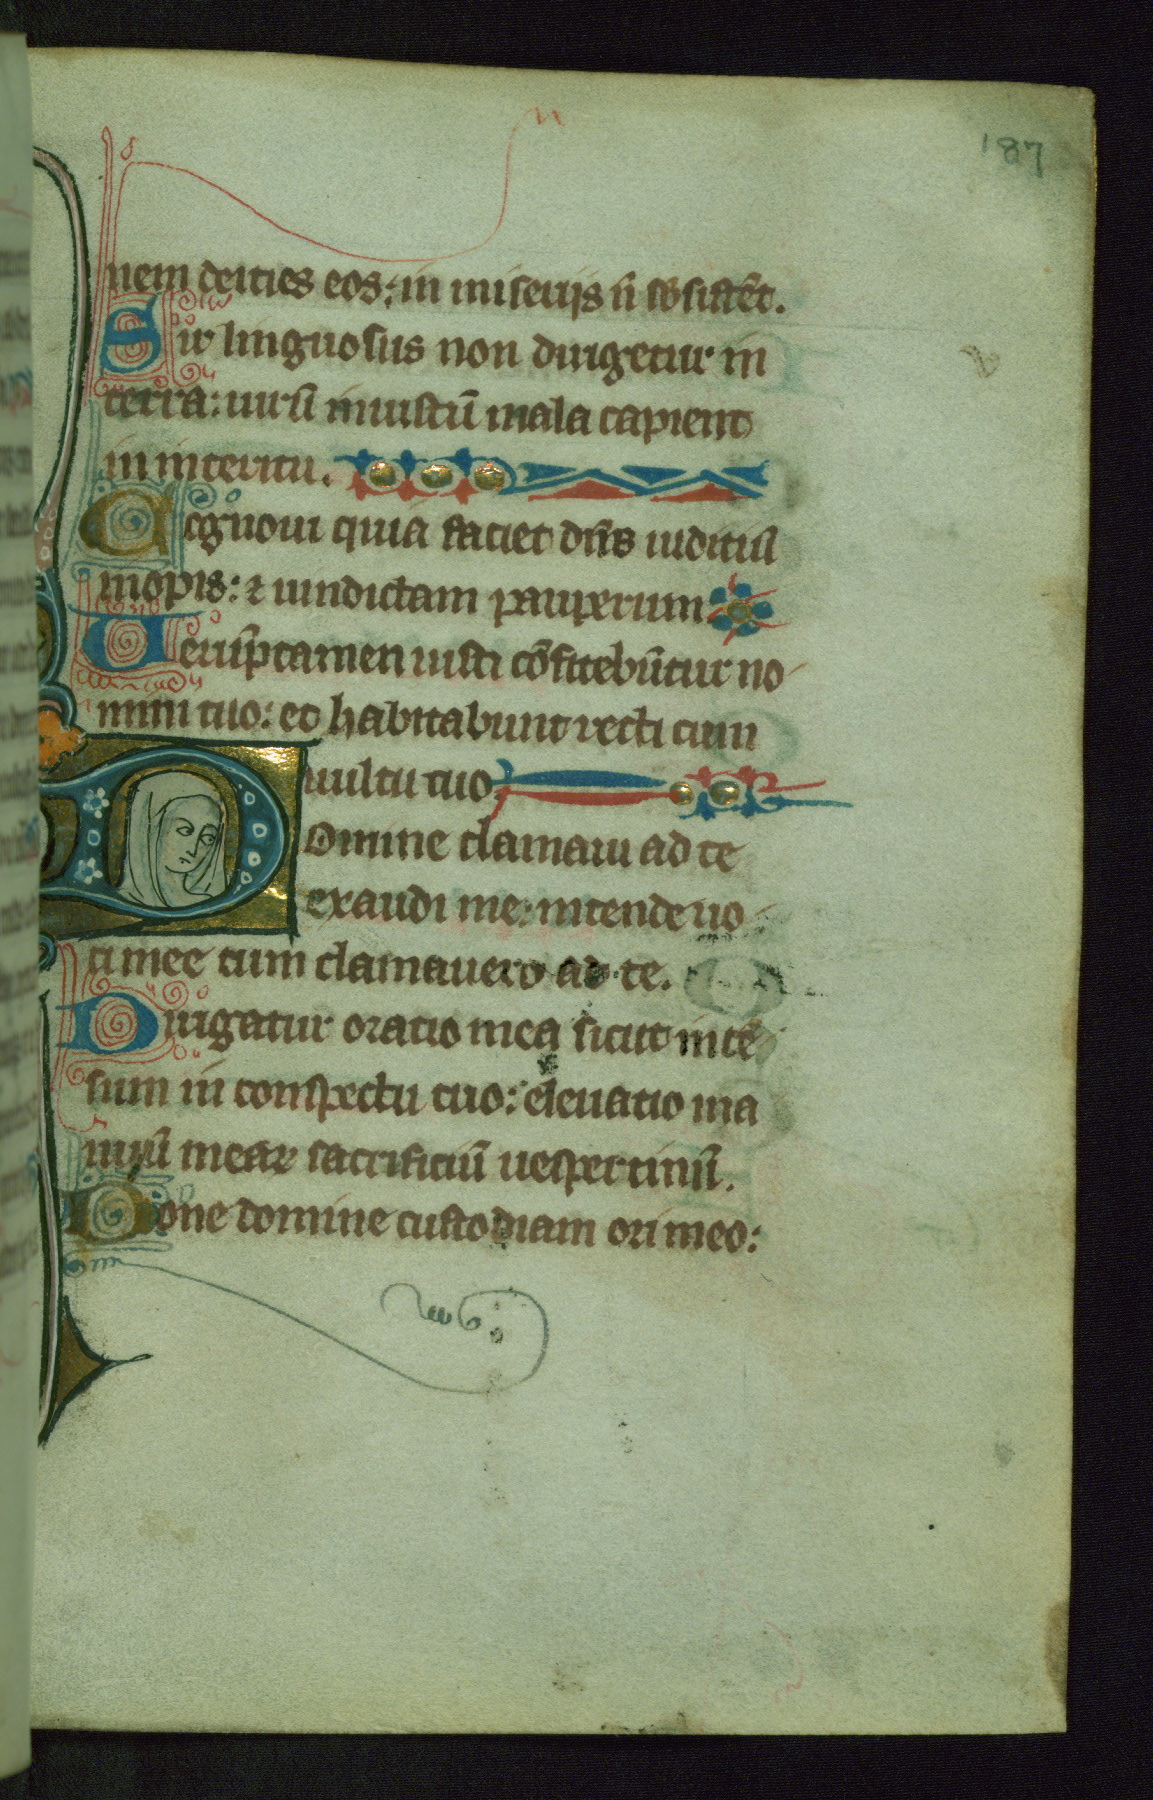 187
nem deities eos: in miserijs ñ sb̃sistẽt.
Sir linguosus non dirigetur in
terra: uirũ iniustũ mala capient
in interitu.
Cognoui quia faciet dñs iudiciũ
inopis: ⁊ uindictam pauperum
Uerũptamen iusti cõfitebũtur no-
mini tuo: et habitabunt recti cum
uultu tuo.
Domine clamaui ad te
exaudi me: intende uo-
ci mee cum clamauero ad te.
Dirigatur oratio mea sicut incẽ-
sum in conspectu tuo: eleuatio ma
nuũ meaꝝ sacrificiũ uespertinũ.
Pone domine custodiam ori meo: